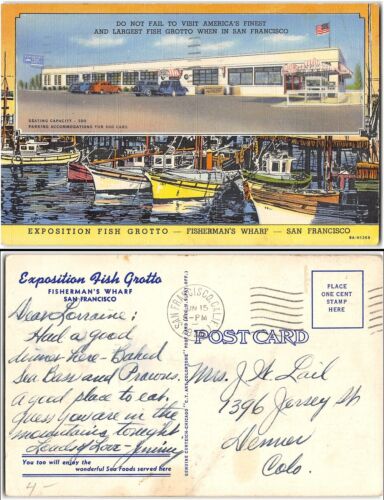 DO NOT FAIL TO VISIT AMERICA'S FINEST
AND LARGEST FISH GROTTO WHEN IN SAN FRANCISCO
SEATING CAPACITY - 300
PARKING ACCOMMODATIONS FOR 500 CARS
EXPOSITION FISH GROTTO — FISHERMAN'S WHARF — SAN FRANCISCO
Exposition Fish Grotto
FISHERMAN'S WHARF
SAN FRANCISCO
Dear Lorraine:
Had a good
dinner here - Baked
Sea Bass and Prawns.
a good place to eat.
Guess you are in the
mountains tonight
Loads of Love - Jimmy
You too will enjoy the
wonderful Sea Foods served here
4-
SAN FRANCISCO, CALIF.
JUN 15
PM
PLACE
ONE CENT
STAMP
HERE
POST CARD
Mrs. J. W. Lail
1396 Jersey St
Denver
Colo.